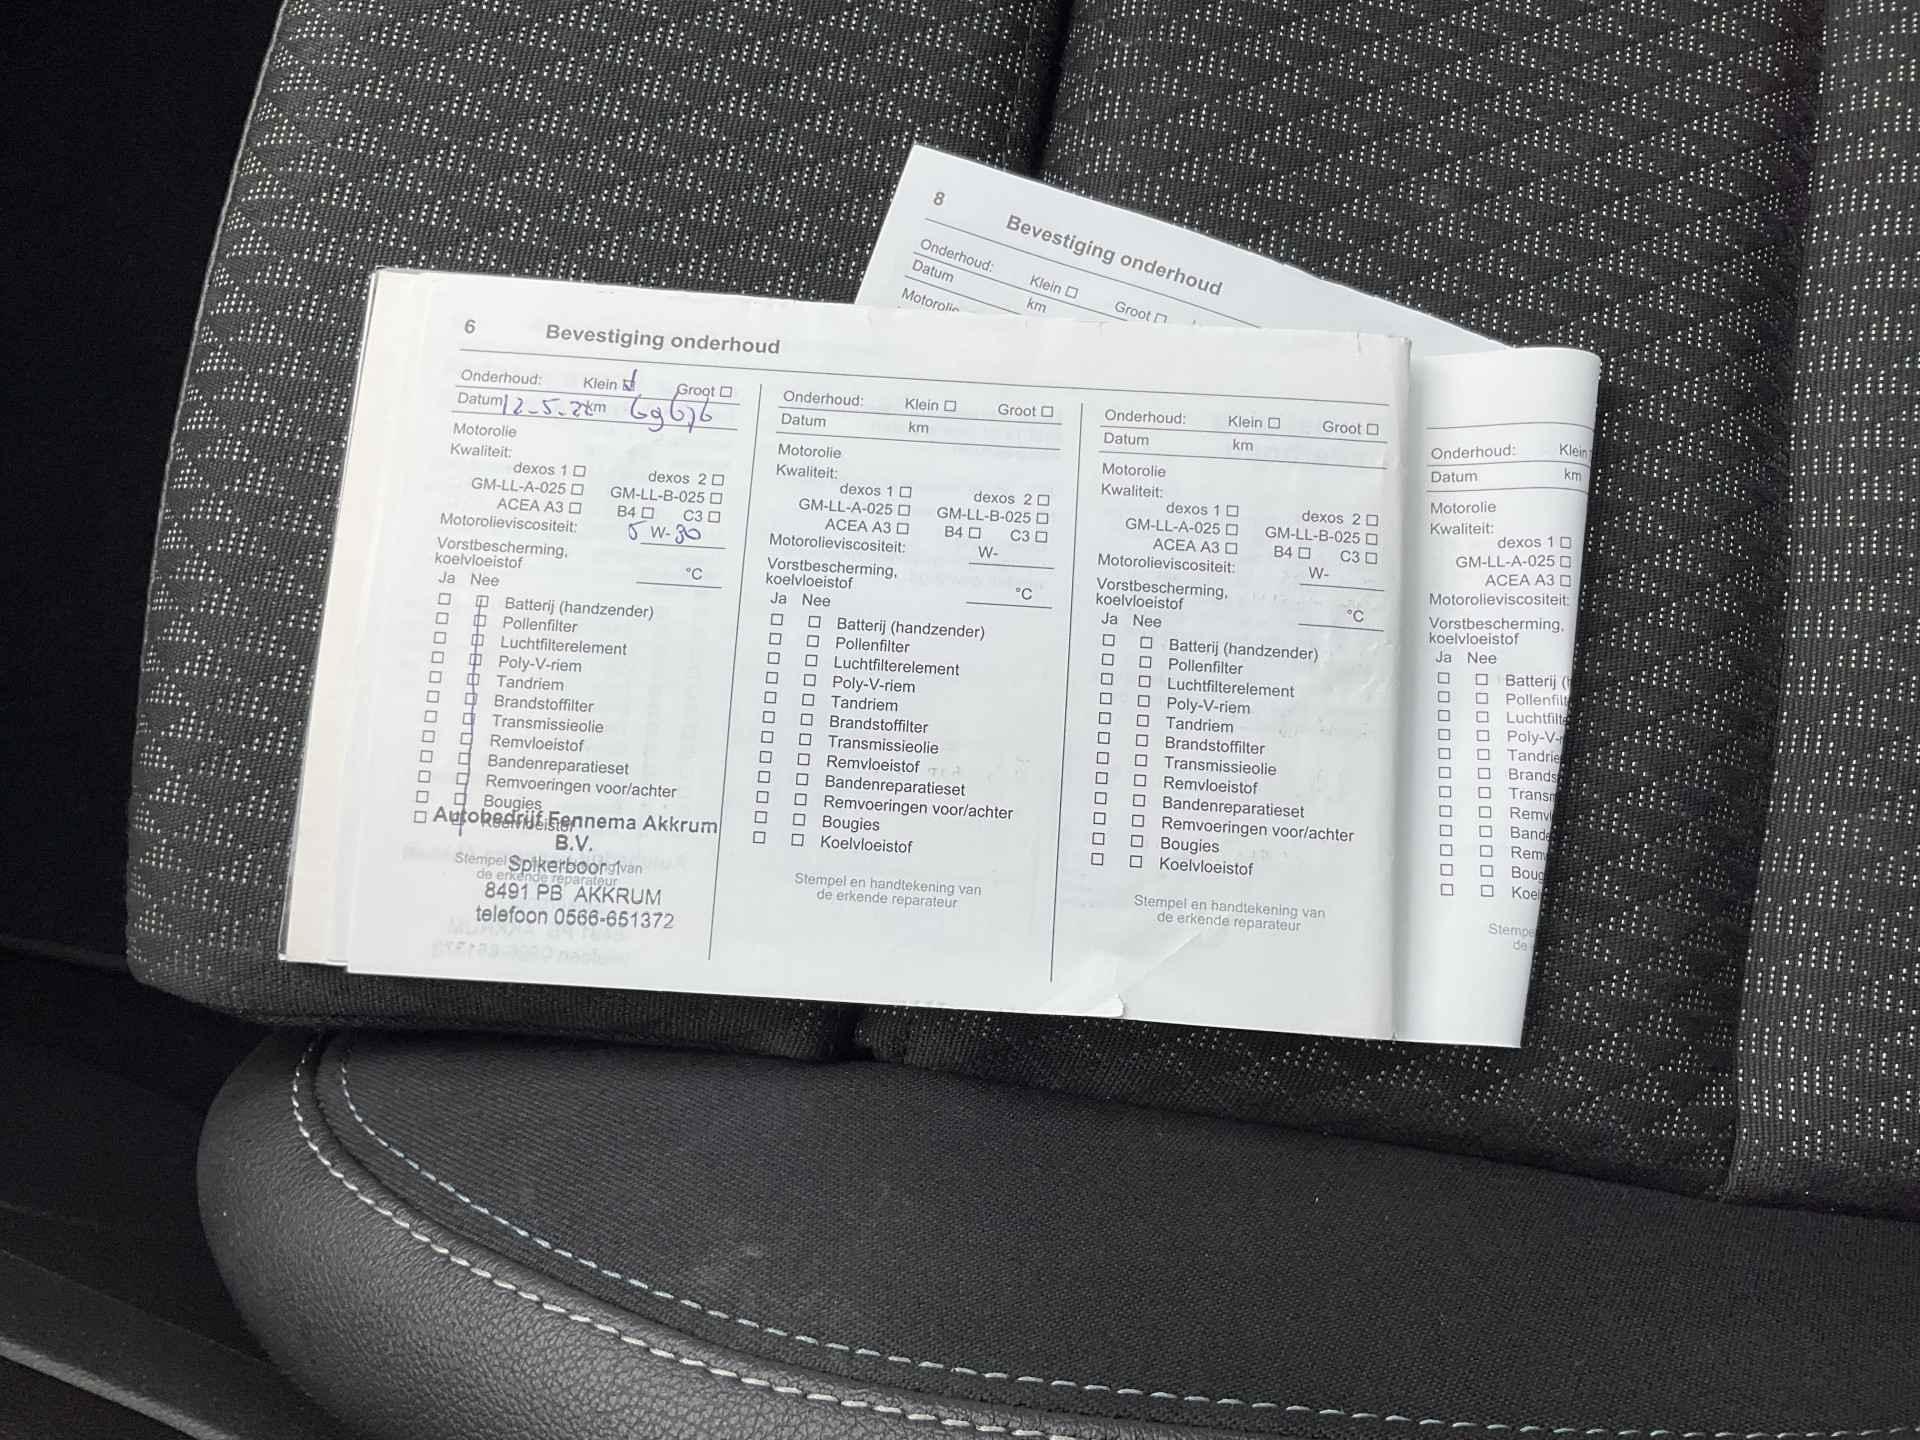 8 Bevestiging onderhoud
Onderhoud: Klein ☐ Groot ☐
Datum km
Motorolie
6 Bevestiging onderhoud
Onderhoud: Klein ☑ Groot ☐
Datum 12-5-22 km
Motorolie
Kwaliteit:
dexos 1 ☐ dexos 2 ☐
GM-LL-A-025 ☐ GM-LL-B-025 ☐
ACEA A3 ☐ B4 ☐ C3 ☐
Motorolieviscositeit: 5 W-30
Vorstbescherming,
koelvloeistof °C
Ja Nee
☐ ☐ Batterij (handzender)
☐ ☐ Pollenfilter
☐ ☐ Luchtfilterelement
☐ ☐ Poly-V-riem
☐ ☐ Tandriem
☐ ☐ Brandstoffilter
☐ ☐ Transmissieolie
☐ ☐ Remvloeistof
☐ ☐ Bandenreparatieset
☐ ☐ Remvoeringen voor/achter
☐ ☐ Bougies
☐ ☐ Koelvloeistof
Autobedrijf Fennema Akkrum
B.V.
Stempel en handtekening van
Spikerboor 1
de erkende reparateur
8491 PB AKKRUM
telefoon 0566-651372
Onderhoud: Klein ☐ Groot ☐
Datum km
Motorolie
Kwaliteit:
dexos 1 ☐ dexos 2 ☐
GM-LL-A-025 ☐ GM-LL-B-025 ☐
ACEA A3 ☐ B4 ☐ C3 ☐
Motorolieviscositeit: W-
Vorstbescherming,
koelvloeistof °C
Ja Nee
☐ ☐ Batterij (handzender)
☐ ☐ Pollenfilter
☐ ☐ Luchtfilterelement
☐ ☐ Poly-V-riem
☐ ☐ Tandriem
☐ ☐ Brandstoffilter
☐ ☐ Transmissieolie
☐ ☐ Remvloeistof
☐ ☐ Bandenreparatieset
☐ ☐ Remvoeringen voor/achter
☐ ☐ Bougies
☐ ☐ Koelvloeistof
Stempel en handtekening van
de erkende reparateur
Onderhoud: Klein ☐ Groot ☐
Datum km
Motorolie
Kwaliteit:
dexos 1 ☐ dexos 2 ☐
GM-LL-A-025 ☐ GM-LL-B-025 ☐
ACEA A3 ☐ B4 ☐ C3 ☐
Motorolieviscositeit: W-
Vorstbescherming,
koelvloeistof °C
Ja Nee
☐ ☐ Batterij (handzender)
☐ ☐ Pollenfilter
☐ ☐ Luchtfilterelement
☐ ☐ Poly-V-riem
☐ ☐ Tandriem
☐ ☐ Brandstoffilter
☐ ☐ Transmissieolie
☐ ☐ Remvloeistof
☐ ☐ Bandenreparatieset
☐ ☐ Remvoeringen voor/achter
☐ ☐ Bougies
☐ ☐ Koelvloeistof
Stempel en handtekening van
de erkende reparateur
Onderhoud: Klein
Datum km
Motorolie
Kwaliteit:
dexos 1 ☐
GM-LL-A-025 ☐
ACEA A3 ☐
Motorolieviscositeit:
Vorstbescherming,
koelvloeistof
Ja Nee
☐ ☐ Batterij (
☐ ☐ Pollenfilt
☐ ☐ Luchtfilte
☐ ☐ Poly-V-
☐ ☐ Tandrie
☐ ☐ Brands
☐ ☐ Transn
☐ ☐ Remvl
☐ ☐ Bande
☐ ☐ Remv
☐ ☐ Boug
☐ ☐ Koel
Stempe
de